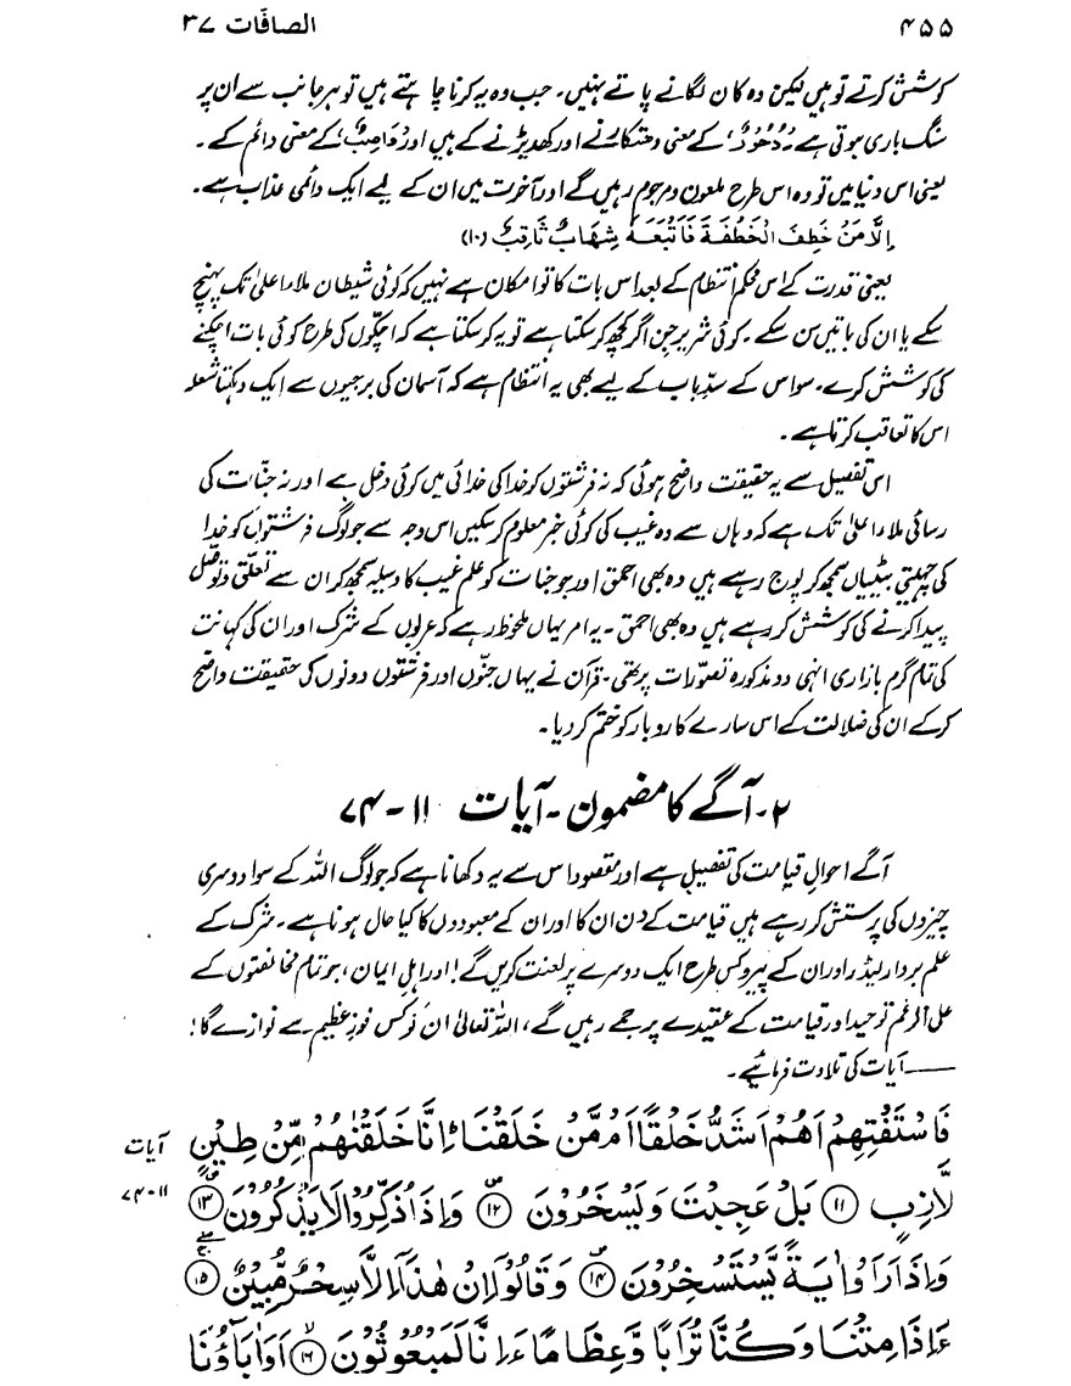 ۴۵۵
الصافّات ۳۷
کوشش کرتے تو ہیں لیکن وہ کان لگانے پاتے نہیں۔ جب وہ یہ کرنا چاہتے ہیں تو ہر جانب سے ان پر
سنگ باری ہوتی ہے۔ ’دُحُورٌ‘ کے معنی دھتکارنے اور کھدیڑنے کے ہیں اور ’وَاصِبٌ‘ کے معنی دائم کے۔
یعنی اس دنیا میں تو وہ اس طرح ملعون و مرجوم رہیں گے اور آخرت میں ان کے لیے ایک دائمی عذاب ہے۔
اِلَّا مَنْ خَطِفَ الْخَطْفَةَ فَاَتْبَعَهٗ شِهَابٌ ثَاقِبٌ (۱۰)
یعنی قدرت کے اس محکم انتظام کے بعد اس بات کا تو امکان ہے نہیں کہ کوئی شیطان ملاء اعلیٰ تک پہنچ
سکے یا ان کی باتیں سن سکے۔ کوئی شریر جن اگر کچھ کر سکتا ہے تو یہ کر سکتا ہے کہ اچکّوں کی طرح کوئی بات اچکنے
کی کوشش کرے۔ سو اس کے سدِّباب کے لیے بھی یہ انتظام ہے کہ آسمان کی برجیوں سے ایک دہکتا شعلہ
اس کا تعاقب کرتا ہے۔
اس تفصیل سے یہ حقیقت واضح ہوئی کہ نہ فرشتوں کو خدا کی خدائی میں کوئی دخل ہے اور نہ جنّات کی
رسائی ملاء اعلیٰ تک ہے کہ وہاں سے وہ غیب کی کوئی خبر معلوم کر سکیں اس وجہ سے جو لوگ فرشتوں کو خدا
کی چہیتی بیٹیاں سمجھ کر پوج رہے ہیں وہ بھی احمق اور جو جنات کو علم غیب کا وسیلہ سمجھ کر ان سے تعلّق و توصّل
پیدا کرنے کی کوشش کر رہے ہیں وہ بھی احمق۔ یہ امر یہاں ملحوظ رہے کہ عربوں کے شرک اور ان کی کہانت
کی تمام گرم بازاری انہی دو مذکورہ تصوّرات پر تھی۔ قرآن نے یہاں جنّوں اور فرشتوں دونوں کی حقیقت واضح
کر کے ان کی ضلالت کے اس سارے کاروبار کو ختم کر دیا۔
۲۔ آگے کا مضمون۔ آیات ۱۱-۷۴
آگے احوالِ قیامت کی تفصیل ہے اور مقصود اس سے یہ دکھانا ہے کہ جو لوگ اللہ کے سوا دوسری
چیزوں کی پرستش کر رہے ہیں قیامت کے دن ان کا اور ان کے معبودوں کا کیا حال ہونا ہے۔ شرک کے
علم بردار لیڈر اور ان کے پیرو کس طرح ایک دوسرے پر لعنت کریں گے! اور اہلِ ایمان، جو تمام مخالفتوں کے
علی الرغم توحید اور قیامت کے عقیدے پر جمے رہیں گے، اللہ تعالیٰ ان کو کس فوزِ عظیم سے نوازے گا!
—— آیات کی تلاوت فرمائیے۔
فَاسْتَفْتِهِمْ اَهُمْ اَشَدُّ خَلْقًا اَمْ مَّنْ خَلَقْنَا ؕ اِنَّا خَلَقْنٰهُمْ مِّنْ طِیْنٍ
آیات
لَّازِبٍ ﴿۱۱﴾ بَلْ عَجِبْتَ وَیَسْخَرُوْنَ ﴿۱۲﴾ وَاِذَا ذُكِّرُوْا لَا یَذْكُرُوْنَ ﴿۱۳﴾
۱۱-۷۴
وَاِذَا رَاَوْا اٰیَةً یَّسْتَسْخِرُوْنَ ﴿۱۴﴾ وَقَالُوْۤا اِنْ هٰذَاۤ اِلَّا سِحْرٌ مُّبِیْنٌ ﴿۱۵﴾
ءَاِذَا مِتْنَا وَكُنَّا تُرَابًا وَّعِظَامًا ءَاِنَّا لَمَبْعُوْثُوْنَ ﴿۱۶﴾ اَوَاٰبَآؤُنَا